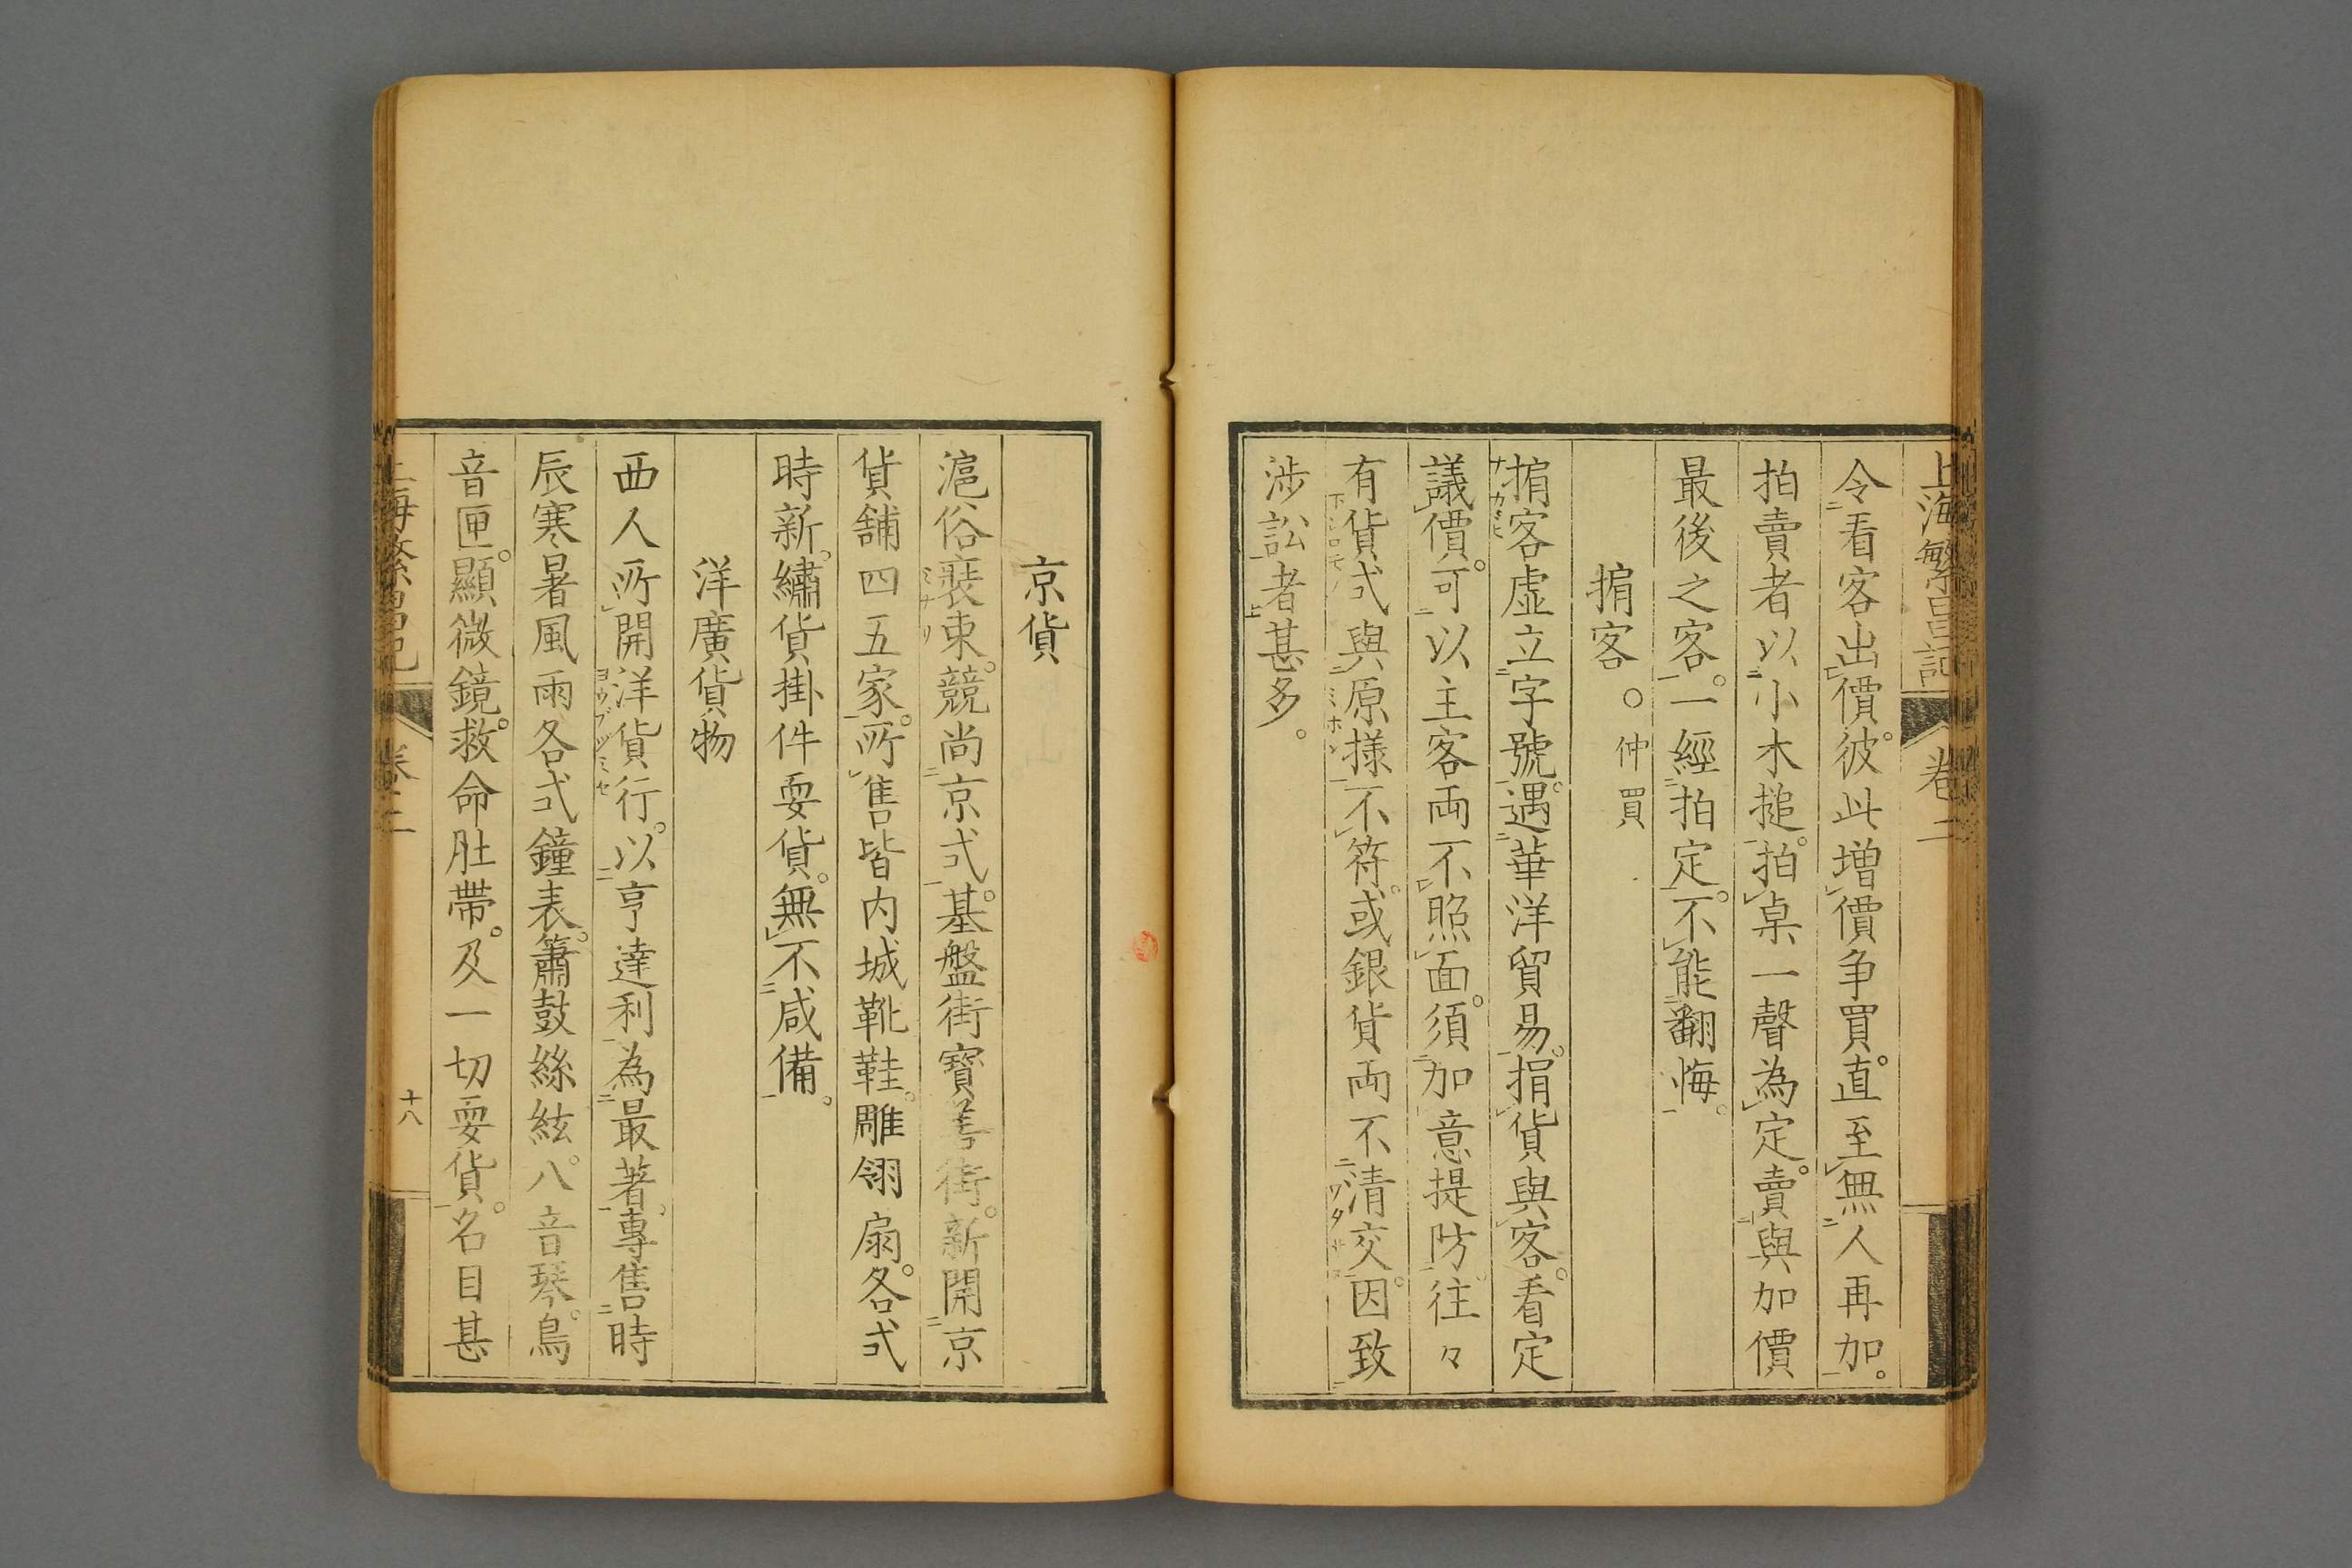 上海繁昌記 卷二
令看客出價。彼此增價争買。直至無人再加。
拍賣者以小木搥。拍桌一聲為定。賣與加價
最後之客。一經拍定。不能翻悔。
掮客○仲買
掮客虛立字號。遇華洋貿易。掮貨與客。看定
議價。可以主客両不照面。須加意提防。往々
有貨式與原様不符。或銀貨両不清交。因致
涉訟者甚多。
京貨
滬俗裝束。競尚京式。基盤街寶善街。新開京
貨舖四五家。所售皆内城靴鞋。雕翎扇。各式
時新。繡貨掛件耍貨。無不咸備。
洋廣貨物
西人所開洋貨行。以亨達利為最著。專售時
辰寒暑風雨各式鐘表。簫鼓絲絃。八音琴。鳥
音匣。顯微鏡。救命肚帶。及一切耍貨。名目甚
上海繁昌記 卷二 十八